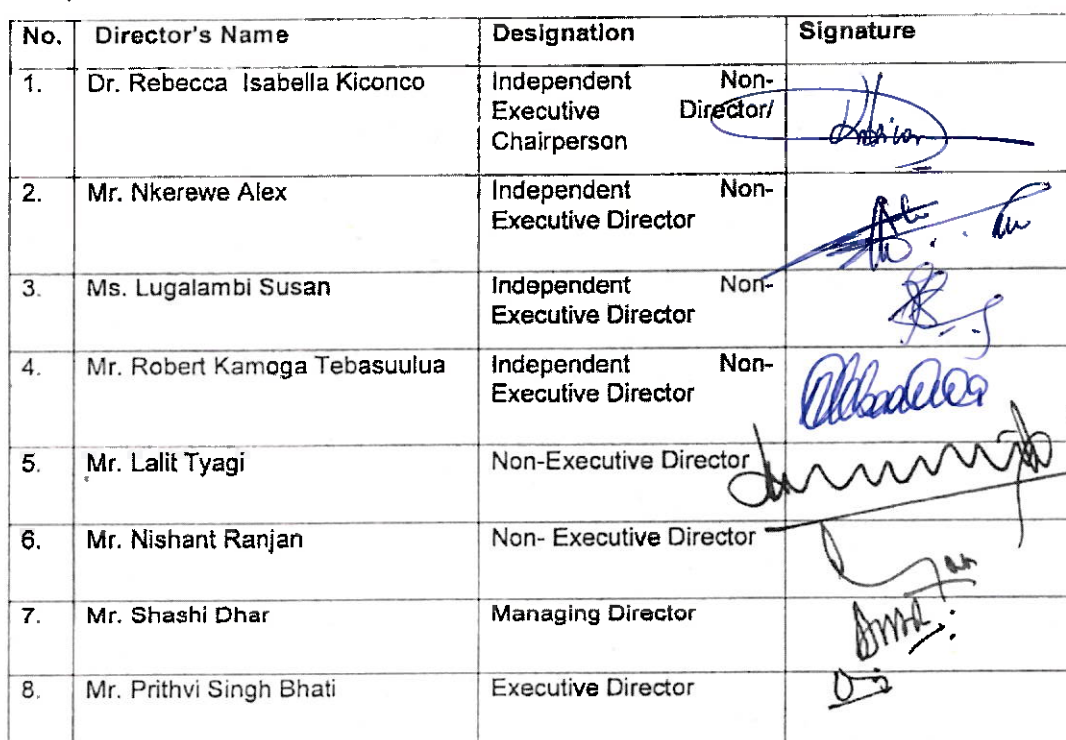 No. Director's Name Designation Signature
1. Dr. Rebecca Isabella Kiconco Independent Non-
Executive Director/
Chairperson
2. Mr. Nkerewe Alex Independent Non-
Executive Director
3. Ms. Lugalambi Susan Independent Non-
Executive Director
4. Mr. Robert Kamoga Tebasuulua Independent Non-
Executive Director
5. Mr. Lalit Tyagi Non-Executive Director
6. Mr. Nishant Ranjan Non- Executive Director
7. Mr. Shashi Dhar Managing Director
8. Mr. Prithvi Singh Bhati Executive Director